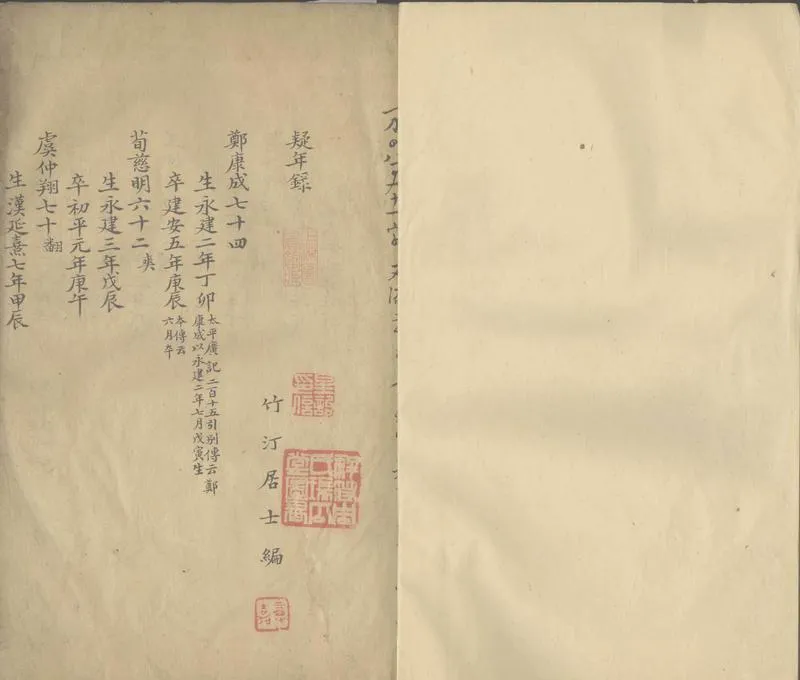 疑年錄
竹汀居士編
鄭康成七十四
生永建二年丁卯 太平廣記二百十五引別傳云鄭
康成以永建二年七月戊寅生
卒建安五年庚辰 本傳云
六月卒
荀慈明六十二 爽
生永建三年戊辰
卒初平元年庚午
虞仲翔七十 翻
生漢延熹七年甲辰